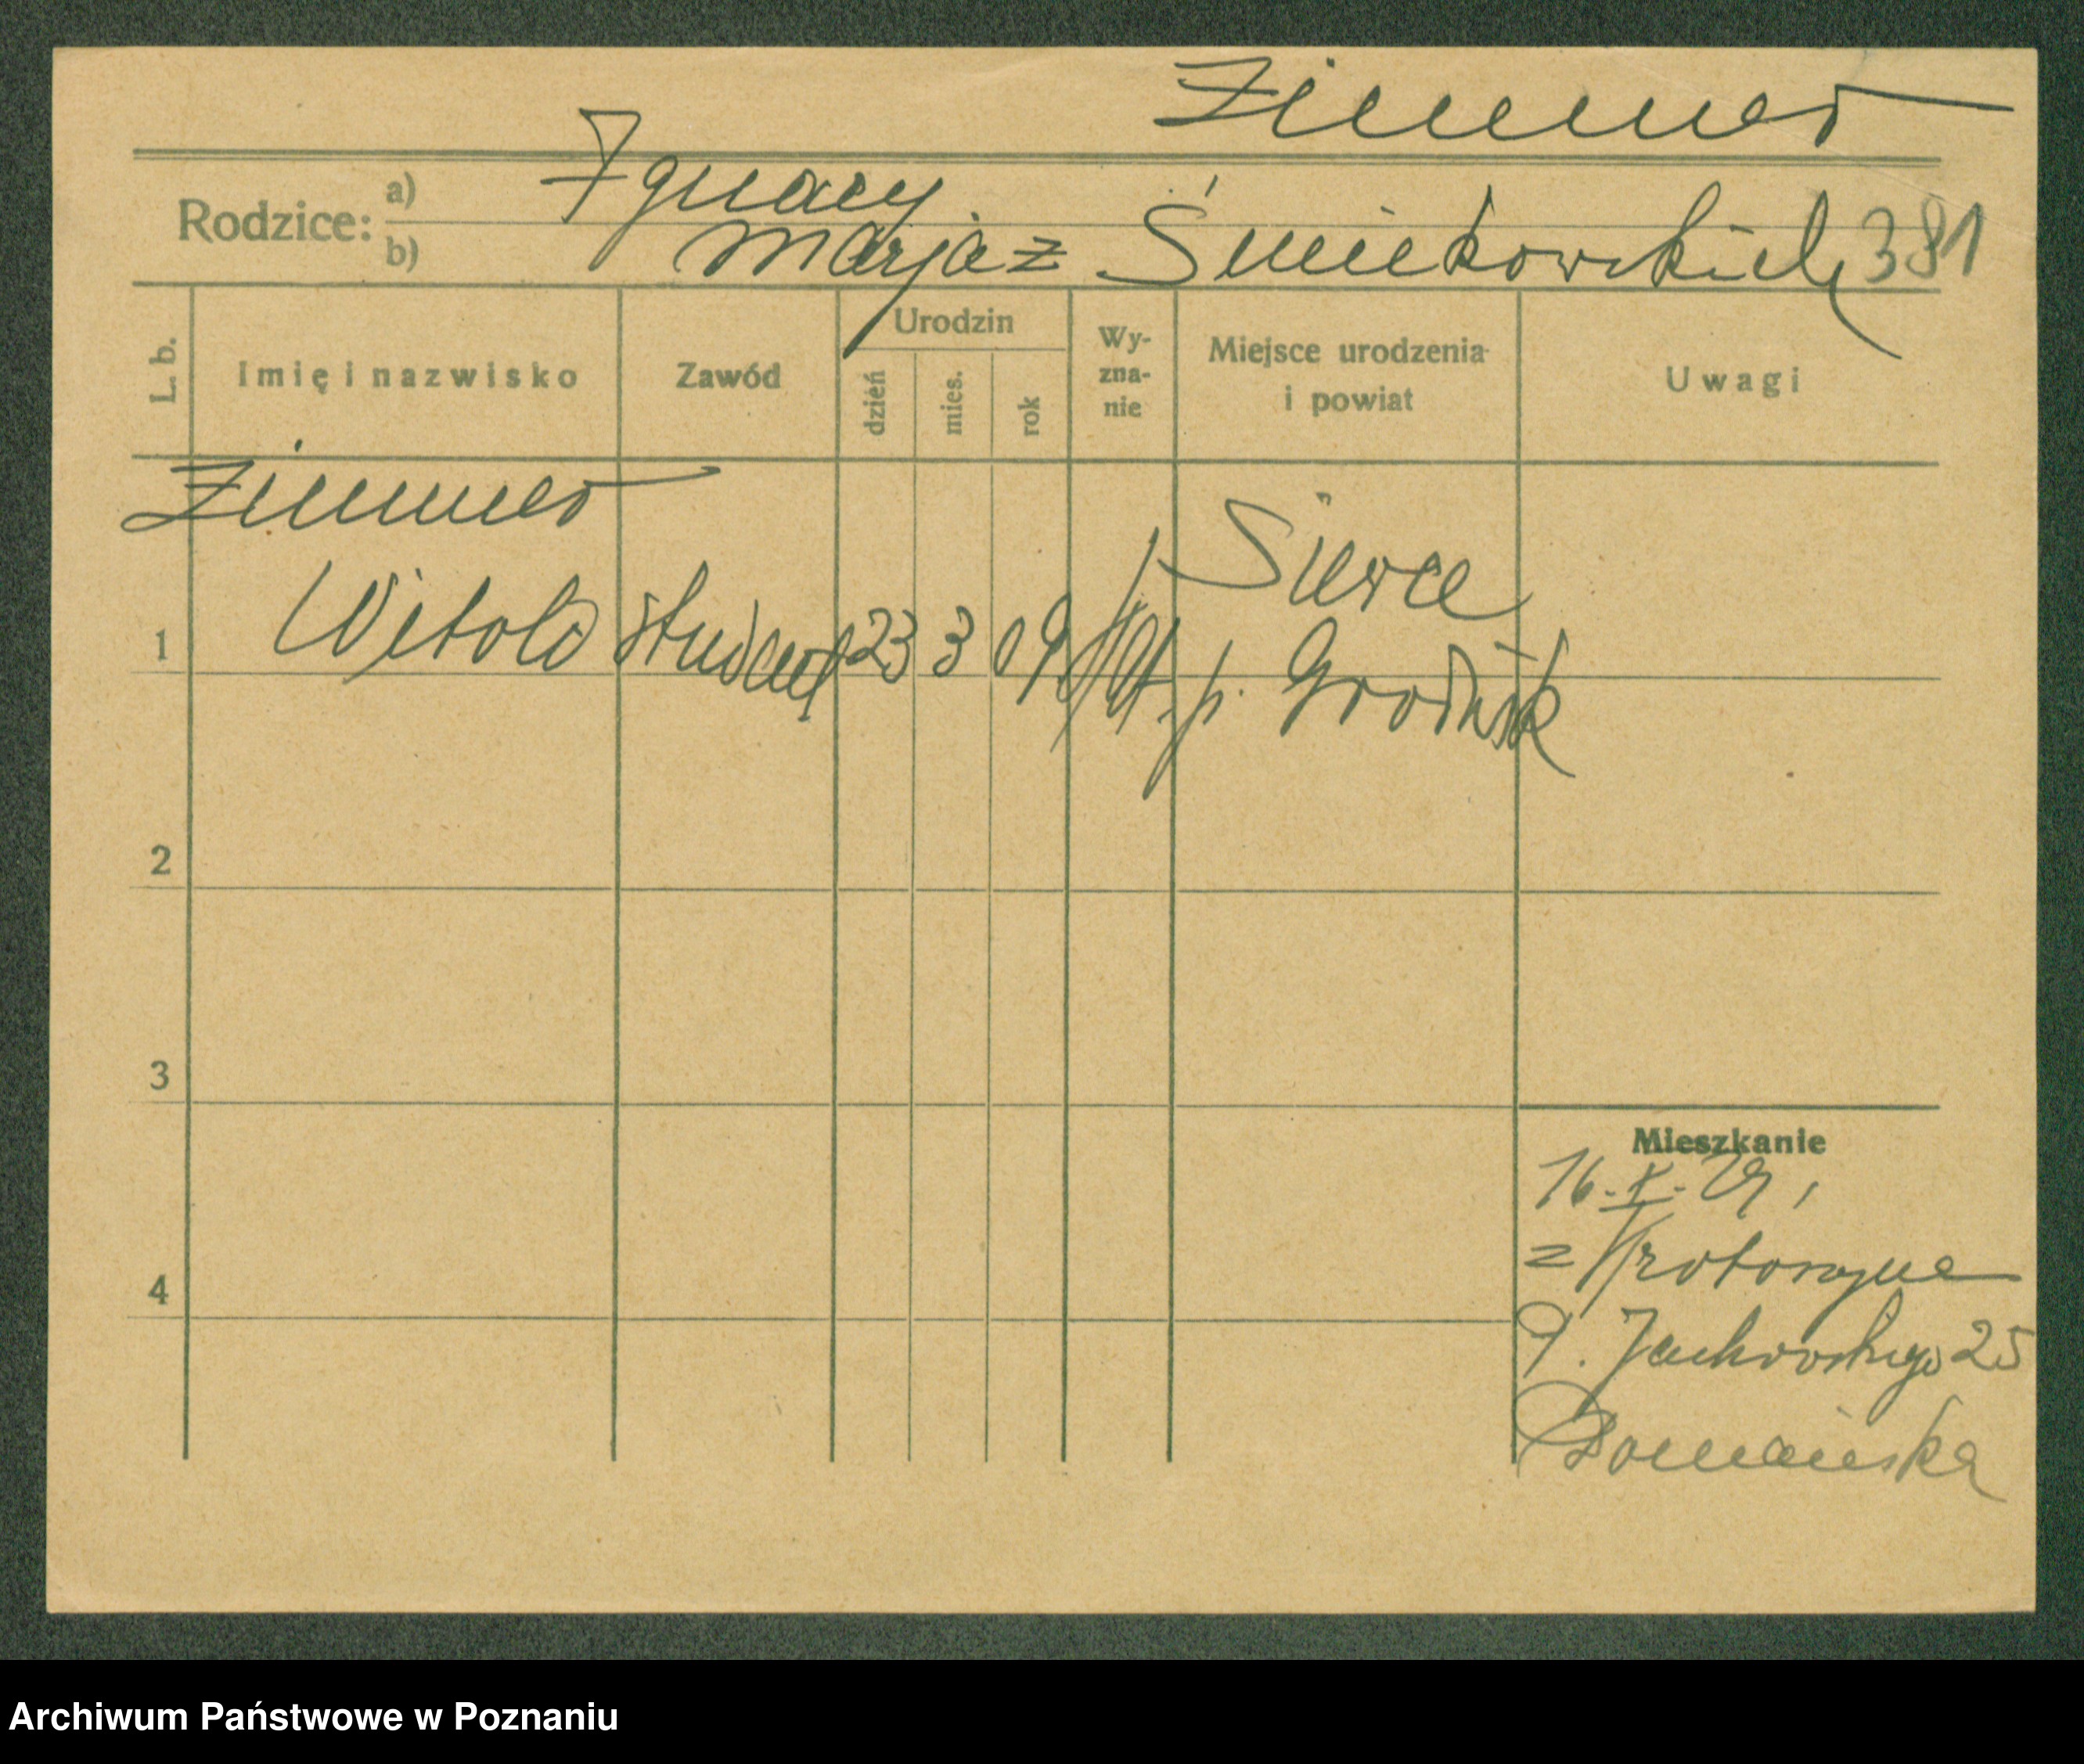 Zimmer
Rodzice: a) Ignacy
b) Marja z Śniekowskich 381
L. b.
Imię i nazwisko
Zawód
Urodzin
dzień
mies.
rok
Wy-
zna-
nie
Miejsce urodzenia
i powiat
Uwagi
Zimmer
1 Witold student 23 3 09 kat.
p. Grodzisk
2
3
4
Mieszkanie
16. X. 29,
z Krotoszyna
Jackowskiego 25
Domańska
Archiwum Państwowe w Poznaniu